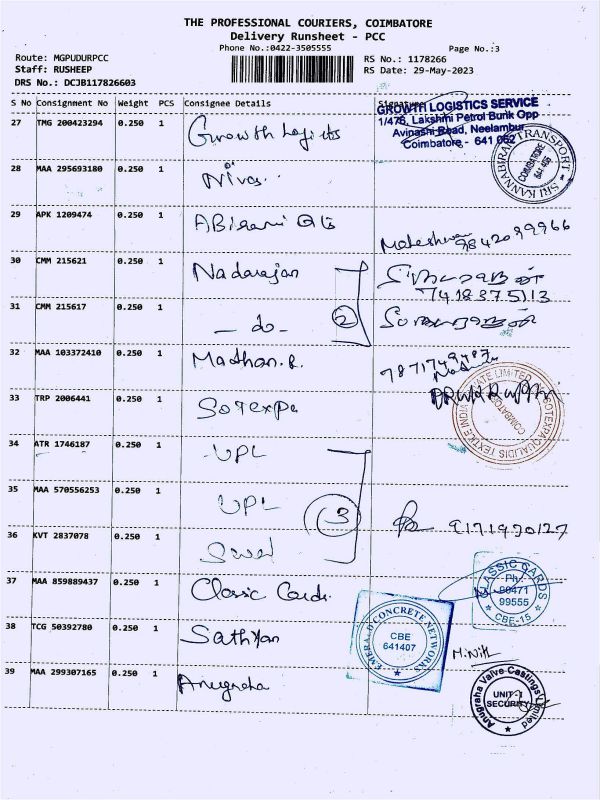 THE PROFESSIONAL COURIERS, COIMBATORE
Delivery Runsheet - PCC
Phone No.:0422-3505555 Page No.:3
Route: MGPUDURPCC RS No.: 1178266
Staff: RUSHEEP RS Date: 29-May-2023
DRS No.: DCJB117826603
S No Consignment No Weight PCS Consignee Details Signature
GROWTH LOGISTICS SERVICE
1/476, Lakshmi Petrol Bunk Opp
Avinashi Road, Neelambur
Coimbatore - 641 062
27 TMG 200423294 0.250 1 Growth Logists
SRI KANNABIRAN TRANSPORT
COIMBATORE
28 MAA 295693180 0.250 1 Niva
29 APK 1209474 0.250 1 ABirami
9842099966
30 CMM 215621 0.250 1 Nadarajan
74.18.37.5113
31 CMM 215617 0.250 1 - do - 2
32 MAA 103372410 0.250 1 Madhan.R.
7871749487
33 TRP 2006441 0.250 1 Sotexpa
SOTEXPA QUALIDIS TEXTILE INDIA PRIVATE LIMITED
COIMBATORE
34 ATR 1746187 0.250 1 UPL
35 MAA 570556253 0.250 1 UPL 3
9171970127
36 KVT 2837078 0.250 1
37 MAA 859889437 0.250 1 Classic Cards.
CLASSIC CARDS
Ph:
99555
CBE-15
38 TCG 50392780 0.250 1 Sathyan
EMERALD CONCRETE NETWORK
CBE
641407
M.Nith
39 MAA 299307165 0.250 1 Anugraha
Anugraha Valve Castings Limited
UNIT-I
SECURITY